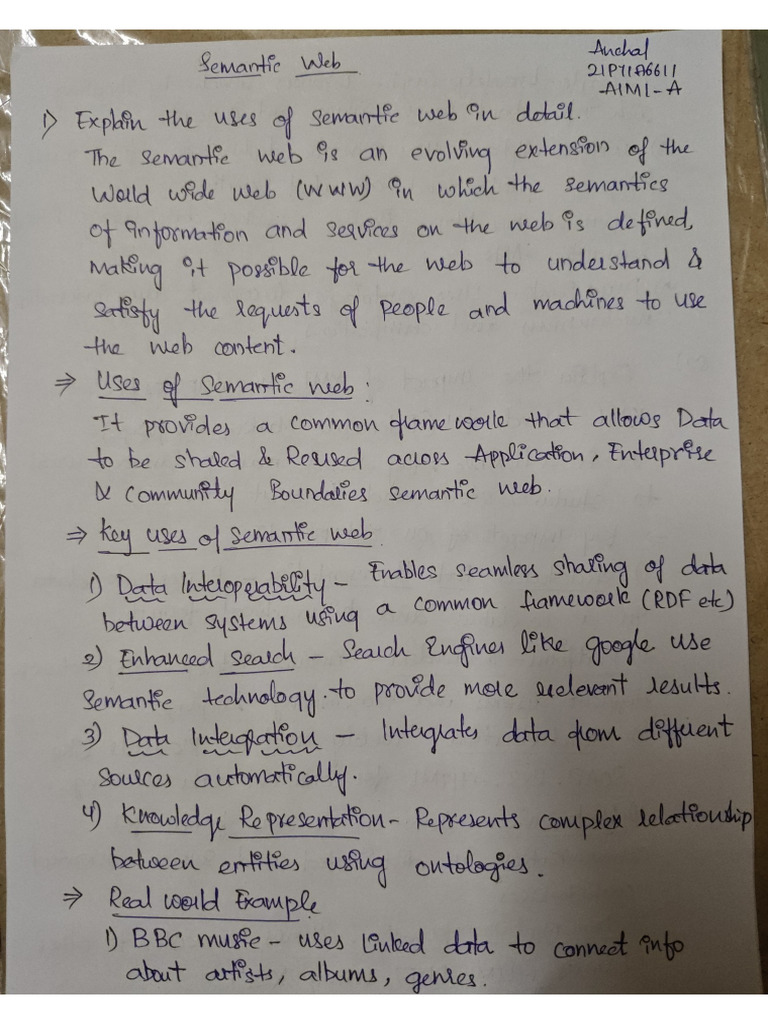 Semantic Web
Anchal
21P71A6611
AIML-A
1) Explain the uses of semantic web in detail.
The semantic web is an evolving extension of the
World wide web (WWW) in which the semantics
of information and services on the web is defined,
making it possible for the web to understand &
satisfy the requests of people and machines to use
the web content.
⇒ Uses of semantic web:
It provides a common framework that allows Data
to be shared & Reused across Application, Enterprise
& community Boundaries semantic web.
⇒ Key uses of semantic web
1) Data Interoperability - Enables seamless sharing of data
between systems using a common framework (RDF etc)
2) Enhanced search - Search Engines like google use
semantic technology to provide more relevant results.
3) Data Integration - Intergrates data from different
sources automatically.
4) Knowledge Representation - Represents complex relationship
between entities using ontologies.
⇒ Real world Example
1) BBC music - uses linked data to connect info
about artists, albums, genres.